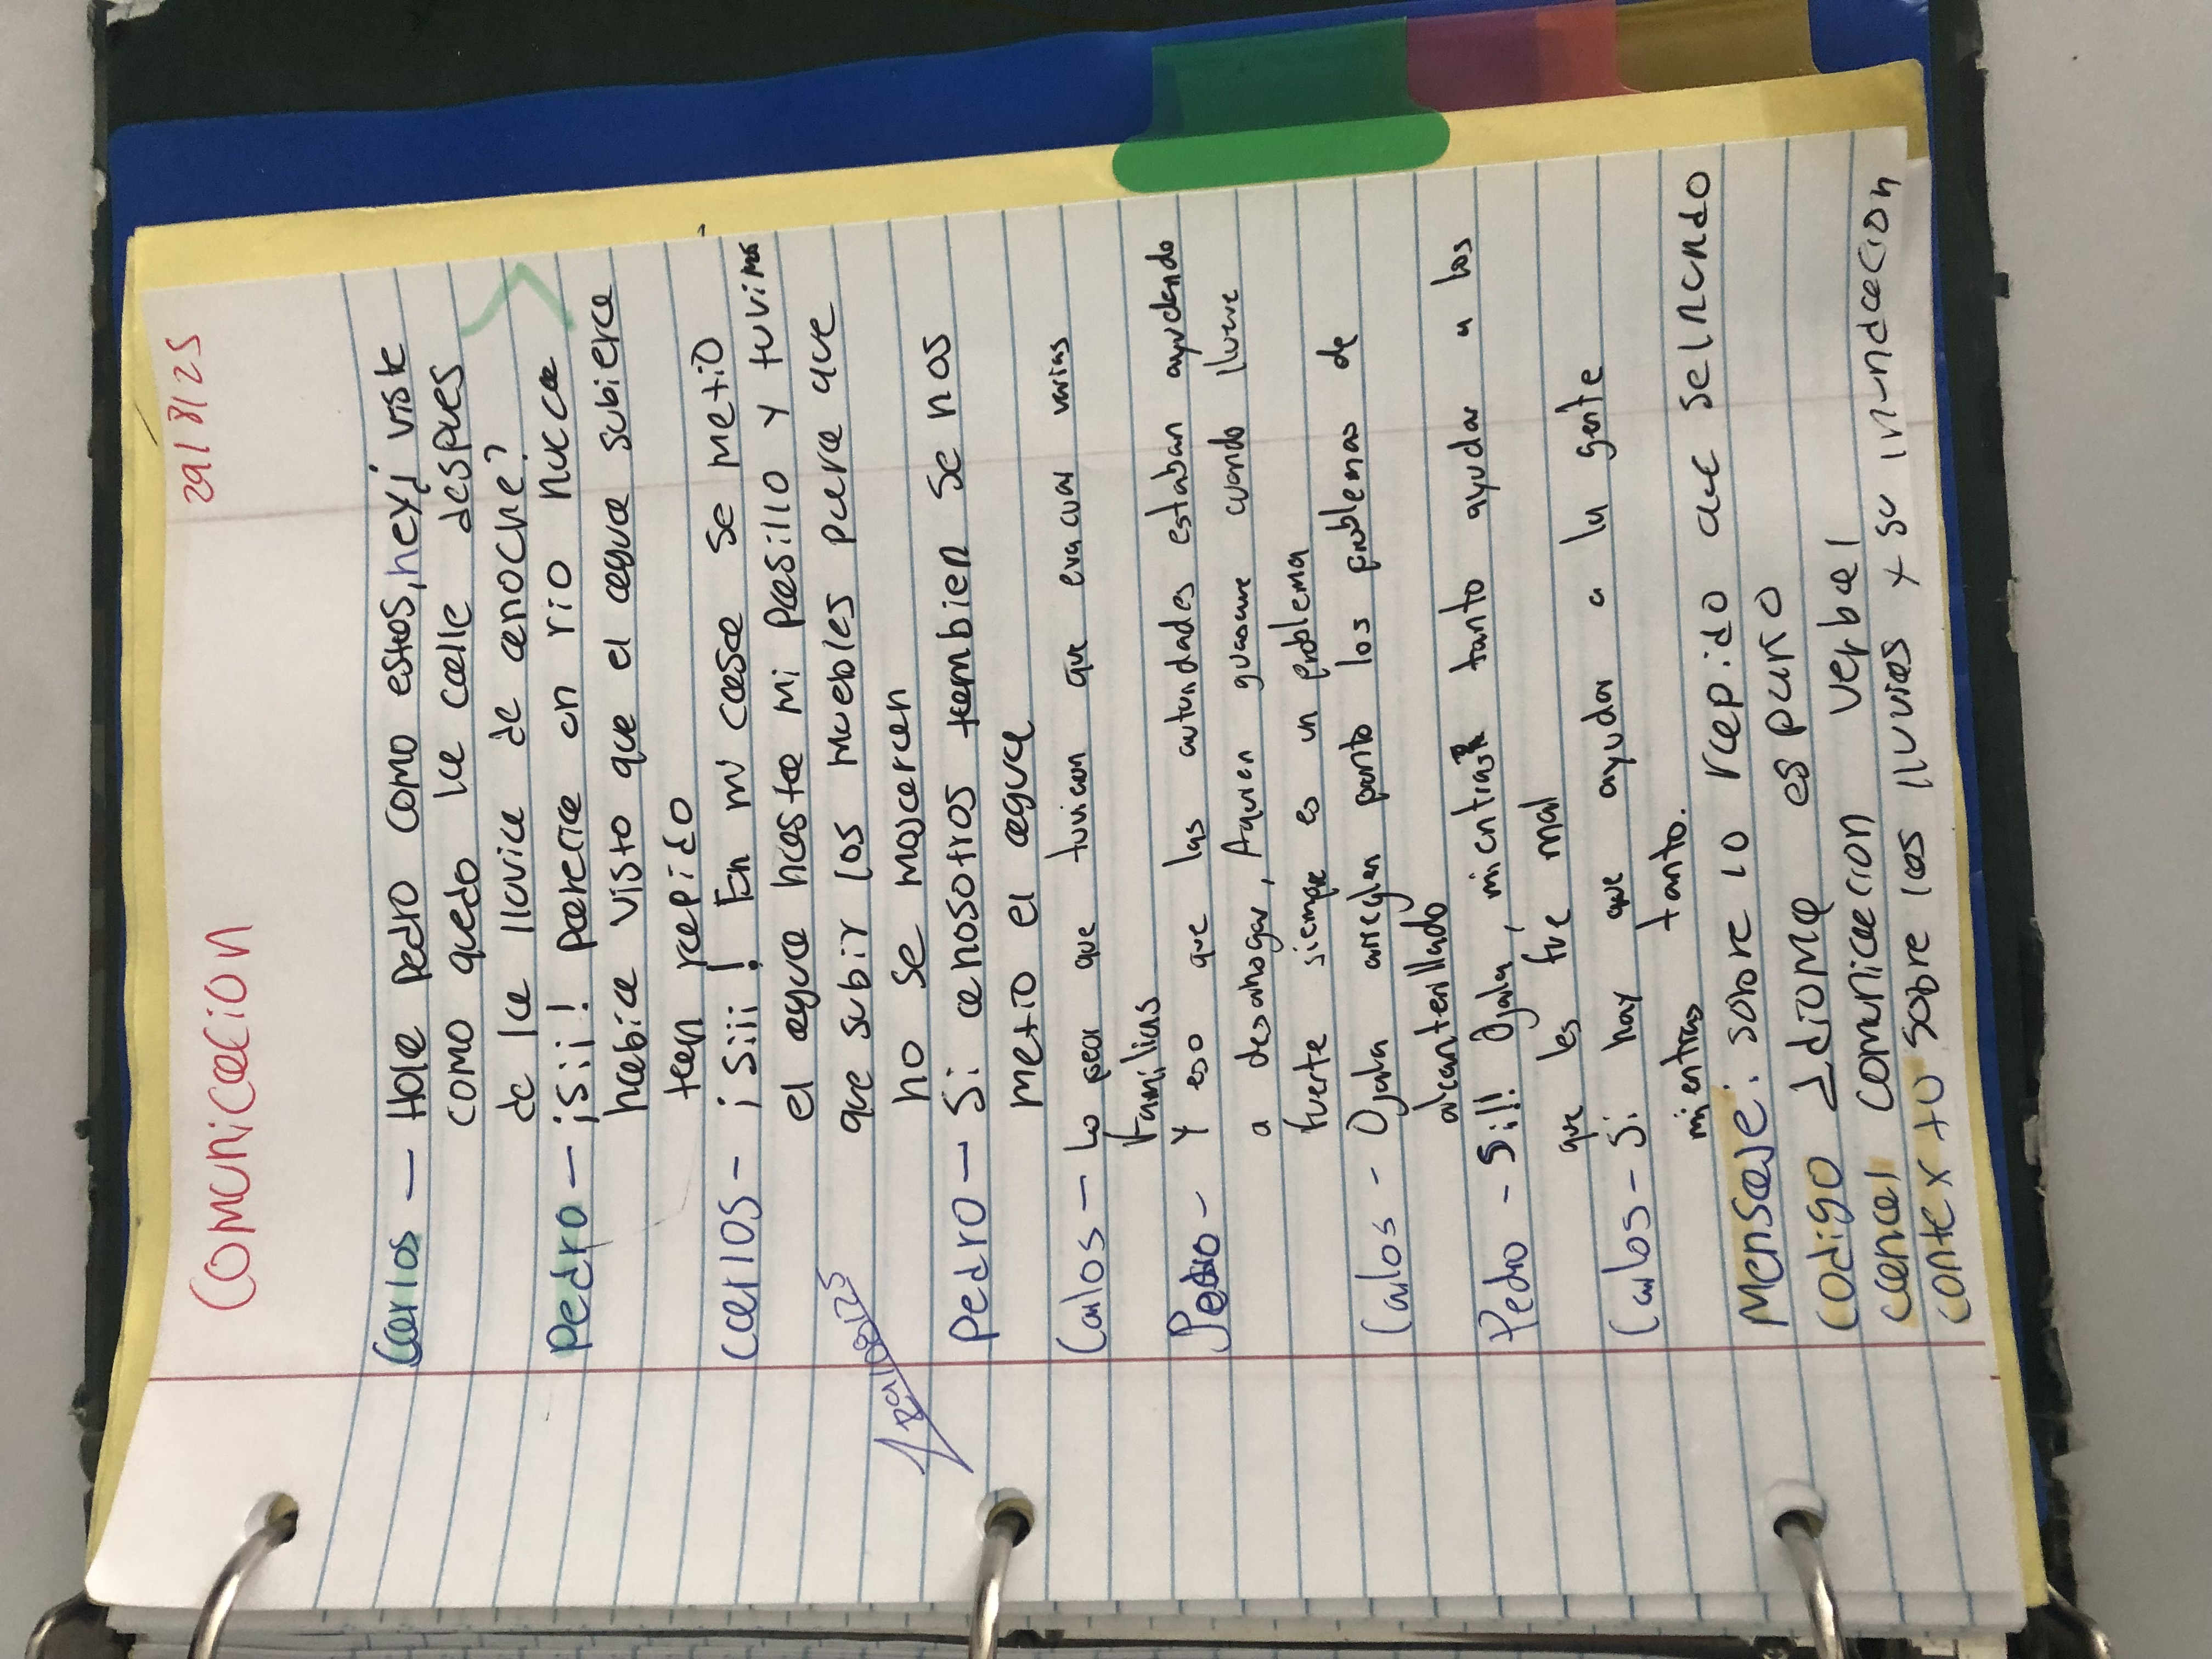 29/8/25
Comunicacion
Carlos — Hola Pedro como estas, hey¿ viste
como quedo la calle despues
de la lluvia de anoche?
Pedro — ¡Sii! parecia un rio nunca
habia visto que el agua subiera
tan rapido
Carlos - ¡Siii! En mi casa se metio
el agua hasta mi pasillo y tuvimos
que subir los muebles para que
no se mojaran
29/08/25
Pedro — Si anosotros tambien se nos
metio el agua
Carlos — Lo peor que tuvieron que evacuar varias
Familias
Pedro - Y eso que las autoridades estaban ayudando
a desahogar, Aquien guasave cuando llueve
fuerte siempre es un problema
Carlos - Ojala arreglen pronto los problemas de
alcanterillado
Pedro - Si!! Ojala, mientras tanto ayudar a los
que les fue mal
Carlos - Si hay que ayudar a la gente
mientras tanto.
Mensaje: sobre lo rapido que
Codigo Idioma español
canal comunicacion verbal
contexto sobre las lluvias y su inundacion